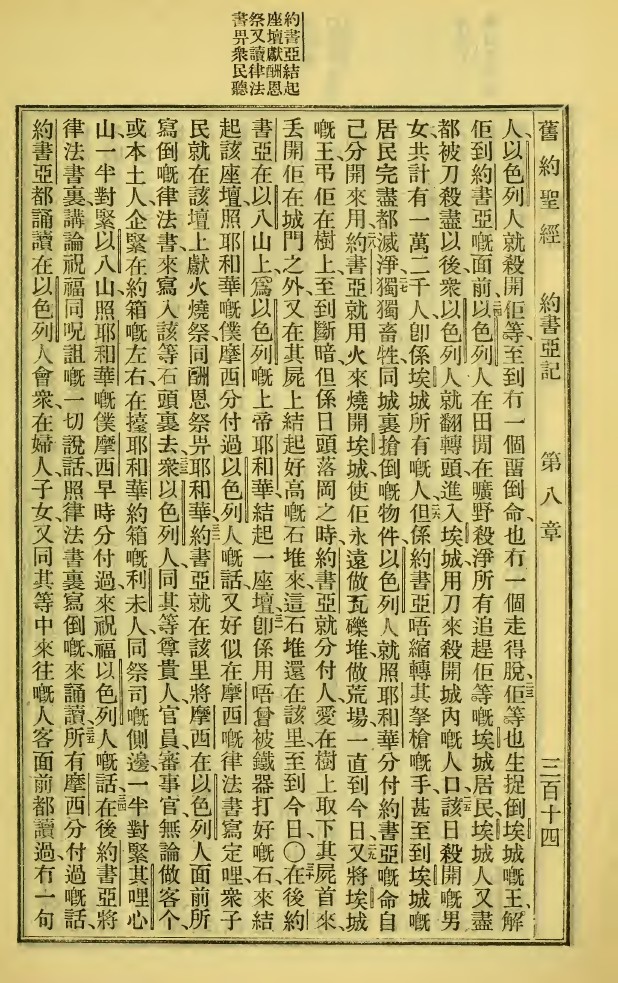 約書亞結起
座壇獻酬恩
祭又讀律法
書畀衆民聽
舊約聖經 約書亞記 第八章 三百十四
人、以色列人就殺開佢等、至到冇一個畱倒命、也冇一個走得脫、二三佢等也生捉倒埃城嘅王、解
佢到約書亞嘅面前、二四以色列人在田閒、在曠野殺淨所有追趕佢等嘅埃城居民、埃城人又盡
都被刀殺盡、以後衆以色列人就翻轉頭進入埃城、用刀來殺開城內嘅人口、二五該日殺開嘅男
女共計有一萬二千人、卽係埃城所有嘅人、二六但係約書亞唔縮轉其拏槍嘅手、甚至到埃城嘅
居民完盡都滅淨、二七獨獨畜牲、同城裏搶倒嘅物件、以色列人就照耶和華分付約書亞嘅命、自
己分開來用、二八約書亞就用火來燒開埃城、使佢永遠做瓦礫堆、做荒場、一直到今日、二九又將埃城
嘅王弔佢在樹上、至到斷暗、但係日頭落岡之時、約書亞就分付人愛在樹上取下其屍首來、
丢開佢在城門之外、又在其屍上結起好高嘅石堆來、這石堆還在該里至到今日、〇三十在後約
書亞在以八山上、爲以色列嘅上帝耶和華結起一座壇、三一卽係用唔曾被鐵器打好嘅石來結
起該座壇、照耶和華嘅僕摩西分付過以色列人嘅話、又好似在摩西嘅律法書寫定哩、衆子
民就在該壇上獻火燒祭、同酬恩祭畀耶和華、三二約書亞就在該里將摩西在以色列人面前所
寫倒嘅律法書、來寫入該等石頭裏去、三三衆以色列人、同其等尊貴人官員審事官、無論做客个、
或本土人、企緊在約箱嘅左右、在擡耶和華約箱嘅利未人、同祭司嘅側邊、一半對緊其哩心
山、一半對緊以八山、照耶和華嘅僕摩西早時分付過、來祝福以色列人嘅話、三四在後約書亞將
律法書裏講論祝福同呪詛嘅一切說話、照律法書裏寫倒嘅、來誦讀、三五所有摩西分付過嘅話、
約書亞都誦讀在以色列人會衆、在婦人、子女、又同其等中來往嘅人客面前都讀過、冇一句